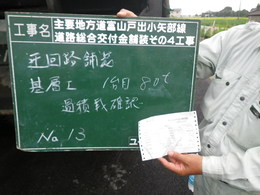 工事名
主要地方道富山戸出小矢部線
道路総合交付金舗装その4工事
迂回路舗装
基層工 1台目 8.0t
過積載確認
No.13